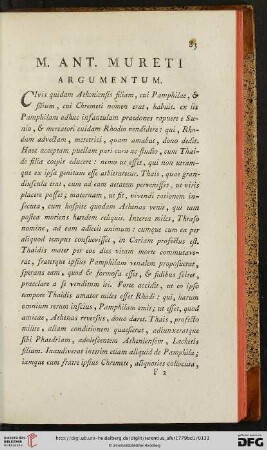 83
M. ANT. MURETI
ARGUMENTUM.
Civis quidam Atheniensis filiam, cui Pamphilae, &
filium, cui Chremeti nomen erat, habuit. ex iis
Pamphilam adhuc infantulam praedones rapuere e Su-
nio, & mercatori cuidam Rhodio vendidere: qui, Rho-
dum advectam, meretrici, quam amabat, dono dedit.
Haec acceptam puellam pari cura ac studio, cum Thai-
de filia coepit educere: nemo ut esset, qui non utram-
que ex ipsa genitam esse arbitraretur. Thais, quae gran-
diuscula erat, cum ad eam aetatem pervenisset, ut viris
placere posset; maternam, ut fit, vivendi rationem in-
secuta, cum hospite quodam Athenas venit, qui eam
postea moriens haedem reliquit. Interea miles, Thraso
nomine, ad eam adiecit animum: cumque cum ea per
aliquod tempus consuevisset, in Cariam profectus est.
Thaidis mater per eos dies vitam morte commutave-
rat, fraterque ipsius Pamphilam venalem proposuerat,
sperans eam, quod & formosa esset, & fidibus sciret,
praeclare a se venditum iri. Forte accidit, ut eo ipso
tempore Thaidis amator miles esset Rhodi: qui, harum
omnium rerum inscius, Pamphilam emit; ut esset, quod
amicae, Athenas reversus, dono daret. Thais, profecto
milite, aliam conditionem quaesierat, adiunxeratque
sibi Phaedriam, adolescentem Atheniensem, Lachetis
filium. Inaudiverat interim etiam aliquid de Pamphila;
iamque cum fratre ipsius Chremete, aliquoties collocuta,
F 2